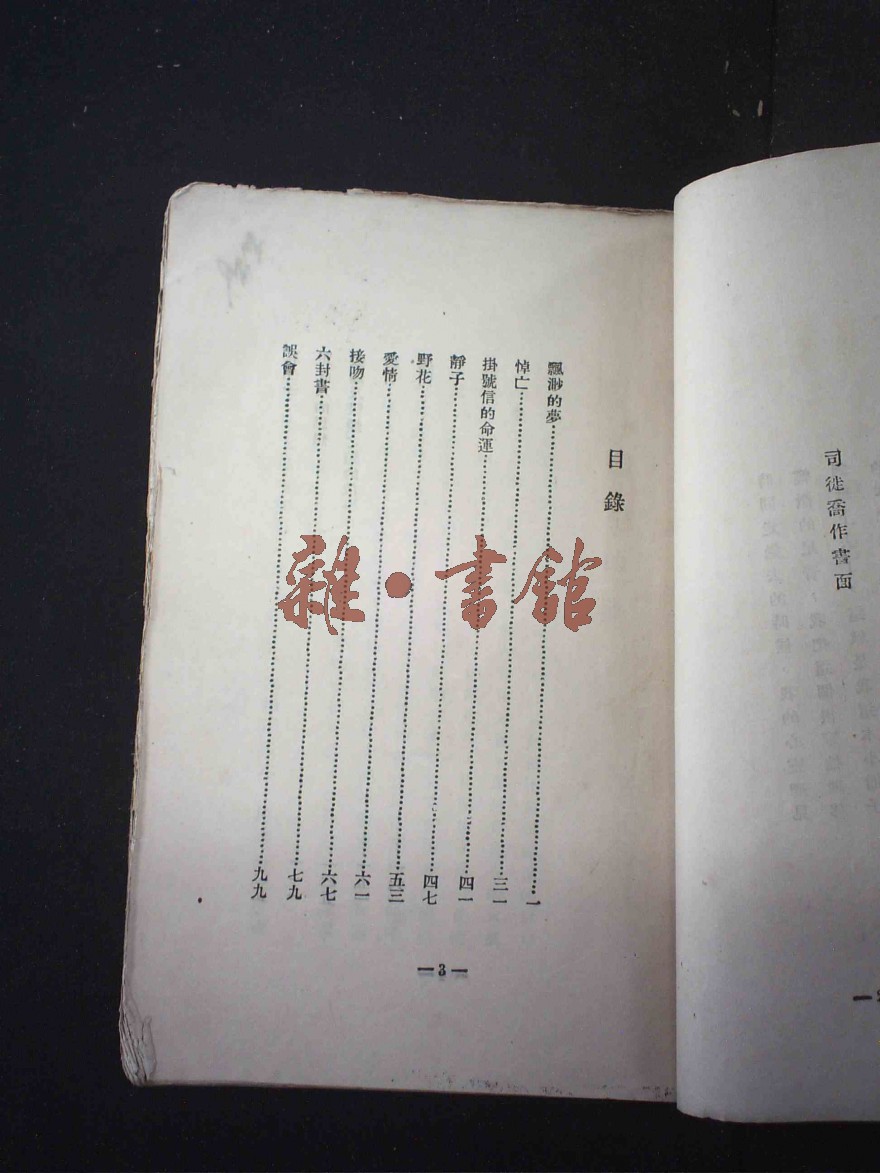 司徒喬作書面
目錄
飄渺的夢……一
悼亡……三一
掛號信的命運……四一
靜子……四七
野花……五三
愛情……六一
接吻……六七
六封書……七九
誤會……九九
—3—
雜·書館